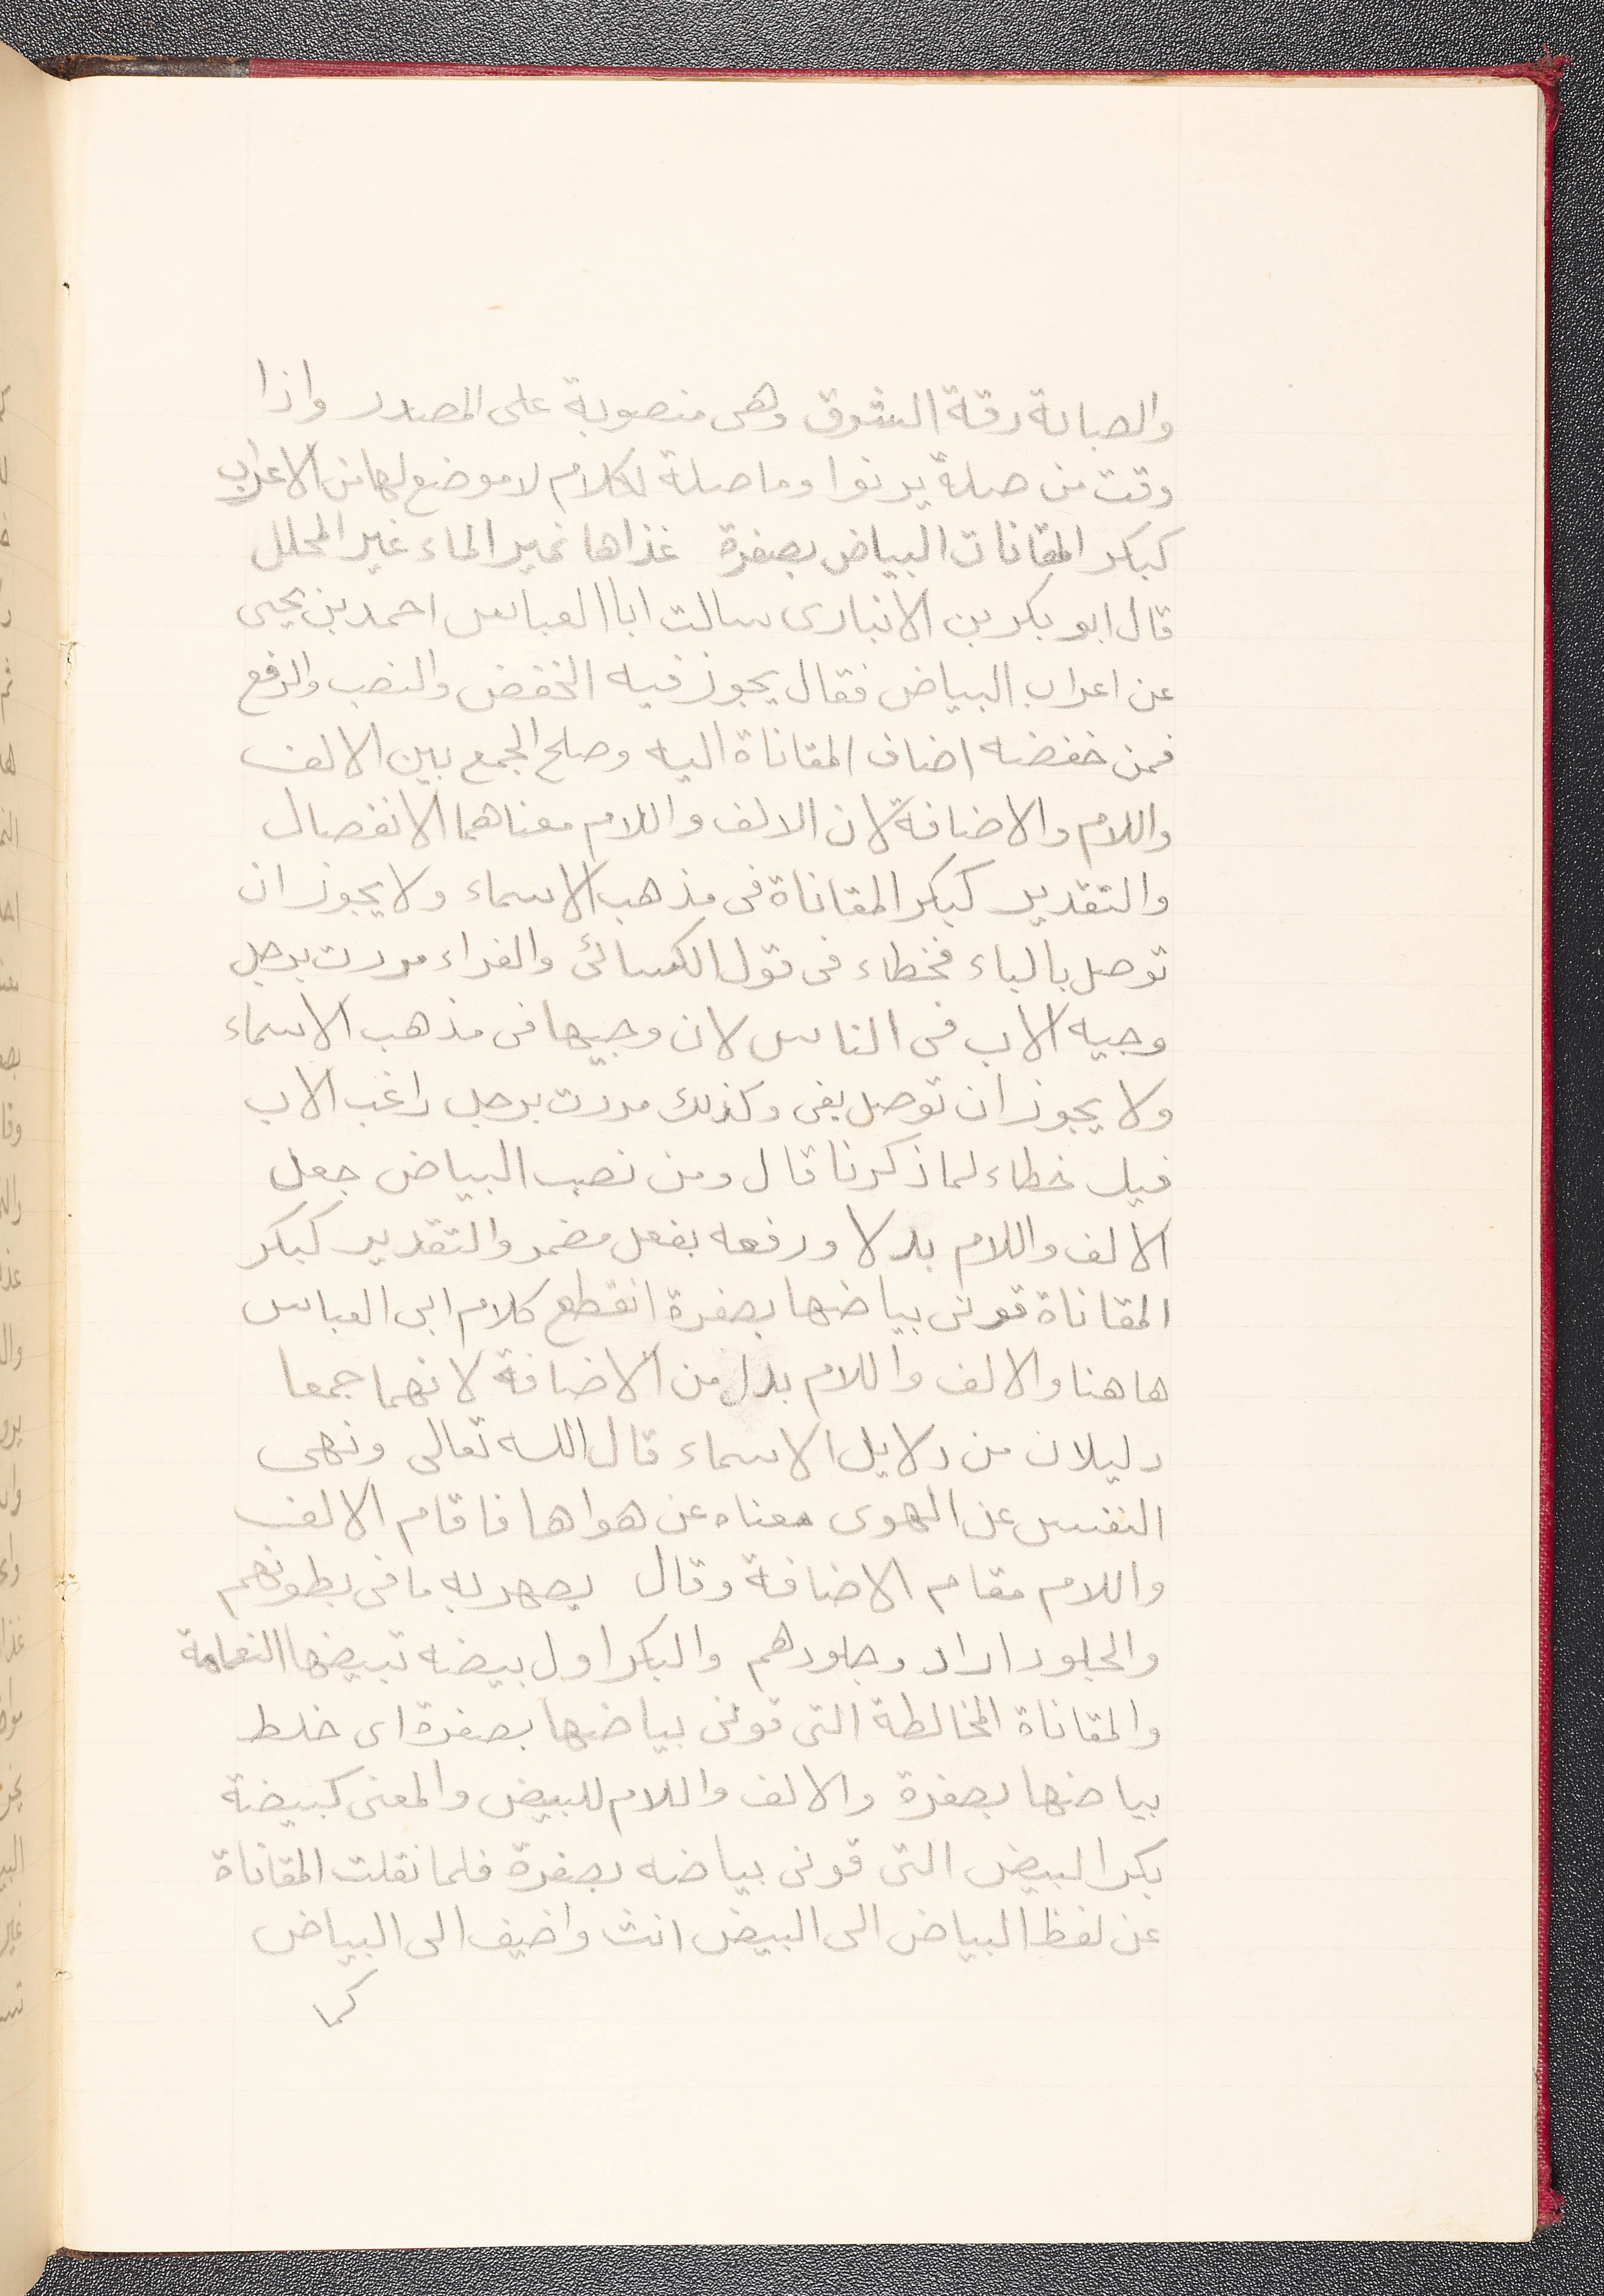 والصبابة رقة الشوق وهى منصوبة على المصدر واذا
وقت من صلة يرنوا وما صلة للكلام لا موضع لها من الاعراب
كبكر المقانات البياض بصفرة غذاها نمير الماء غير المحلل
قال ابو بكر بن الانبارى سالت ابا العباس احمد بن يحيى
عن اعراب البياض فقال يجوز فيه الخفض والنصب والرفع
فمن خفضه اضاف المقاناة اليه وصلح الجمع بين الالف
واللام والاضافة لان الالف واللام معناهما الانفصال
والتقدير كبكر المقاناة فى مذهب الاسماء ولا يجوز ان
توصل بالباء فخطاء فى قول الكسائى والفراء مررت برجل
وجيه الاب فى الناس لان وجيها فى مذهب الاسماء
ولا يجوز ان توصل بفى وكذلك مررت برجل راغب الاب
فيك خطاء لما ذكرنا قال ومن نصب البياض جعل
الالف واللام بدلا ورفعه بفعل مضمر والتقدير كبكر
المقاناة قونى بياضها بصفرة انقطع كلام ابى العباس
هاهنا والالف واللام بدل من الاضافة لانهما جمعا
دليلان من دلايل الاسماء قال الله تعالى ونهى
النفس عن الهوى معناه عن هواها فاقام الالف
واللام مقام الاضافة وقال يصهر به ما فى بطونهم
والجلود اراد وجلودهم والبكر اول بيضه تبيضها النعامة
والمقاناة المخالطة التى قونى بياضها بصفرة اى خلط
بياضها بصفرة والالف واللام للبيض والمعنى كبيضة
بكر البيض التى قونى بياضه بصفرة فلما نقلت المقاناة
عن لفظ البياض الى البيض انث واضيف الى البياض
كما